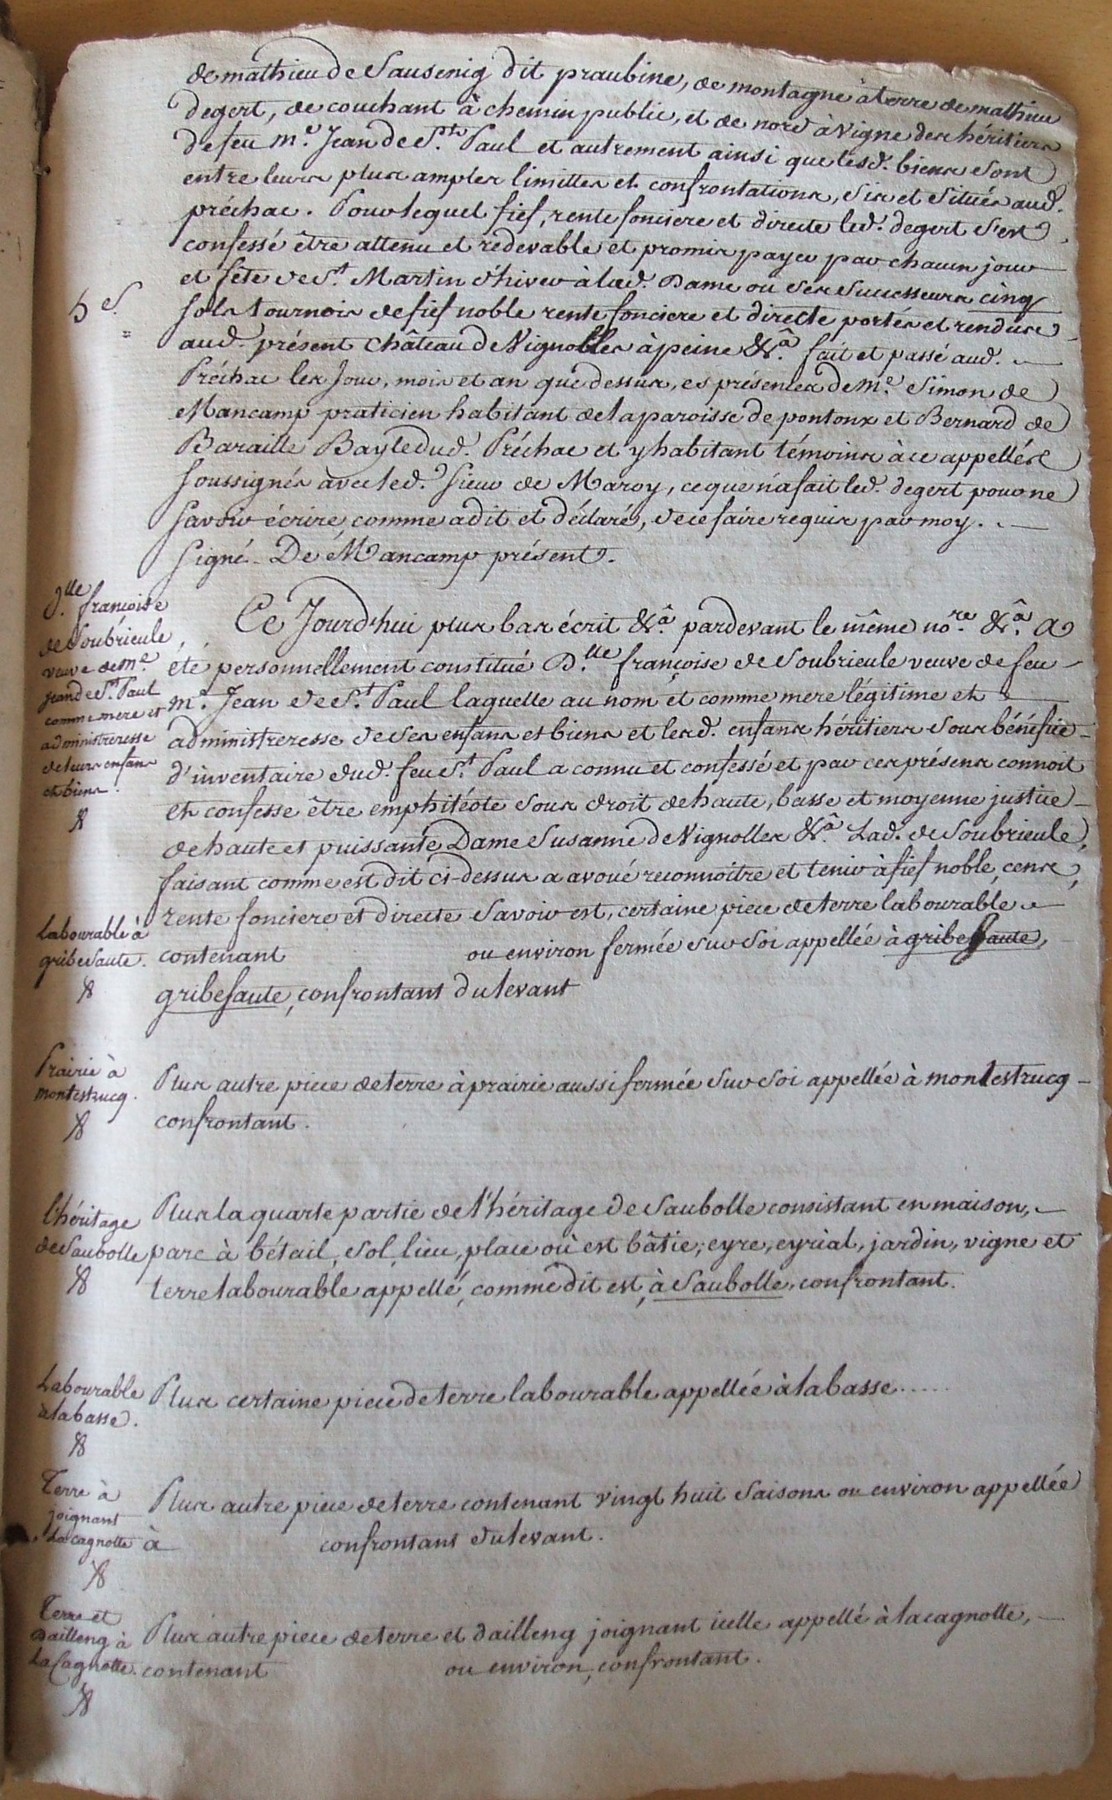 de mathieu de Sausenig dit praubine, de montagne à terre de mathieu
degert, de couchant à chemin public, et de nord à vigne des héritiers
de feu m.e Jean de S.t Paul et autrement ainsi que lesd. biens sont
entre leurs plus amples limittes et confrontations, sis et situés aud.
préchac. Pour lequel fief, rente fonciere et directe led. degert s'est
confessé être attenu et redevable et promis payer par chacun jour
et fête de S.t Martin d'hiver à lad. Dame ou ses successeurs cinq
5 s.
sols tournois de fief noble rente fonciere et directe portés et rendus
aud. présent château de Vignolles à peine &.a fait et passé aud.
Préchac les Jour, mois et an que dessus, es présences de m.e Simon de
Mancamp praticien habitant de la paroisse de pontonx et Bernard de
Baraille Bayle dud. Préchac et y habitant témoins à ce appellés
soussignés avec led. sieur de Maroy, ce que n'a fait led. degert pour ne
savoir écrire, comme a dit et déclaré, de ce faire requis par moy.
Signé. De Mancamp présent.
d.lle françoise
de Soubrieule
veuve de m.e
jean de S.t Paul
comme mere et
administreresse
de leurs enfans
et biens.
Ce Jourd'hui plus bas écrit &.a pardevant le même no.re &.a a
été personnellement constitué D.lle françoise de Soubrieule veuve de feu
m.e Jean de S.t Paul laquelle au nom et comme mere légitime et
administreresse de ses enfans et biens et lesd. enfans héritiers sous bénéfice
d'inventaire dud. feu S.t Paul a connu et confessé et par ces présens connoit
et confesse être emphitéote sous droit de haute, basse et moyenne justice
de haute et puissante Dame Susanne de Vignolles &.a Lad. de Soubrieule,
faisant comme est dit ci-dessus a avoué reconnoitre et tenir à fief noble, cens,
rente fonciere et directe Savoir est, certaine piece de terre labourable
Labourable à
gribesaute.
contenant ou environ fermée sur soi appellée à gribesaute,
gribesaute, confrontant du levant
Prairie à
montestrucq.
Plus autre piece de terre à prairie aussi fermée sur soi appellée à montestrucq
confrontant.
l'héritage
de Saubolle
Plus la quarte partie de l'héritage de Saubolle consistant en maison,
parc à bétail, sol, lieu, place où est bâtie, eyre, eyrial, jardin, vigne et
terre labourable appellé, comme dit est, à Saubolle, confrontant.
Labourable
à labasse.
Plus certaine piece de terre labourable appellée à labasse......
Terre à
joignant
La cagnotte
Plus autre piece de terre contenant vingt huit saisons ou environ appellée
à confrontant du levant.
Terre et
dailleng à
La Cagnotte.
Plus autre piece de terre et dailleng joignant icelle appellé à la cagnotte,
contenant ou environ, confrontant.